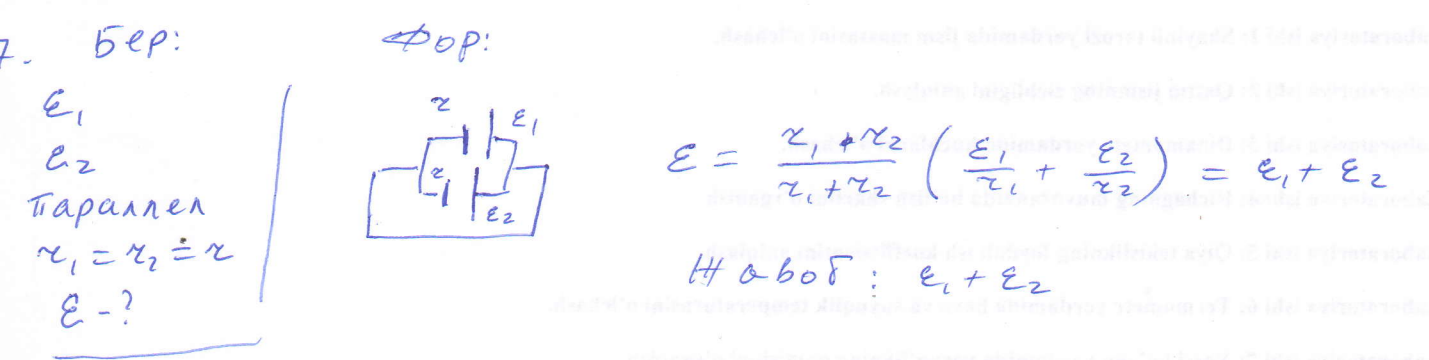 7. Бер:
ε₁
ε₂
параллел
r₁ = r₂ = r
ε - ?
Фор:
r ε₁
r ε₂
ε = r₁ · r₂ / r₁ + r₂ ( ε₁ / r₁ + ε₂ / r₂ ) = ε₁ + ε₂
Жавоб: ε₁ + ε₂